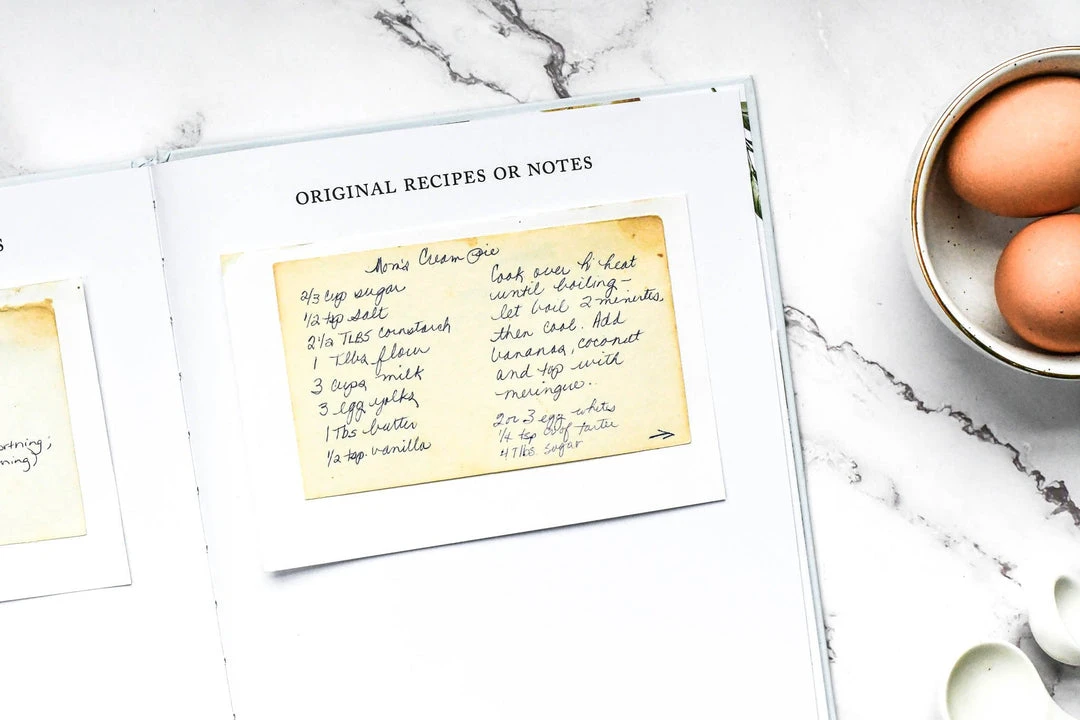 S
ortning;
ning)
ORIGINAL RECIPES OR NOTES
Mom's Cream Pie
2/3 cup sugar
1/2 tsp salt
2 1/2 TLBS cornstarch
1 Tlbs flour
3 cups milk
3 egg yolks
1 Tbs butter
1/2 tsp. vanilla
Cook over hi heat
until boiling -
let boil 2 minutes,
then cool. Add
bananas, coconut
and top with
meringue..
2 or 3 egg whites
1/4 tsp of tarter
4 Tlbs. sugar
→